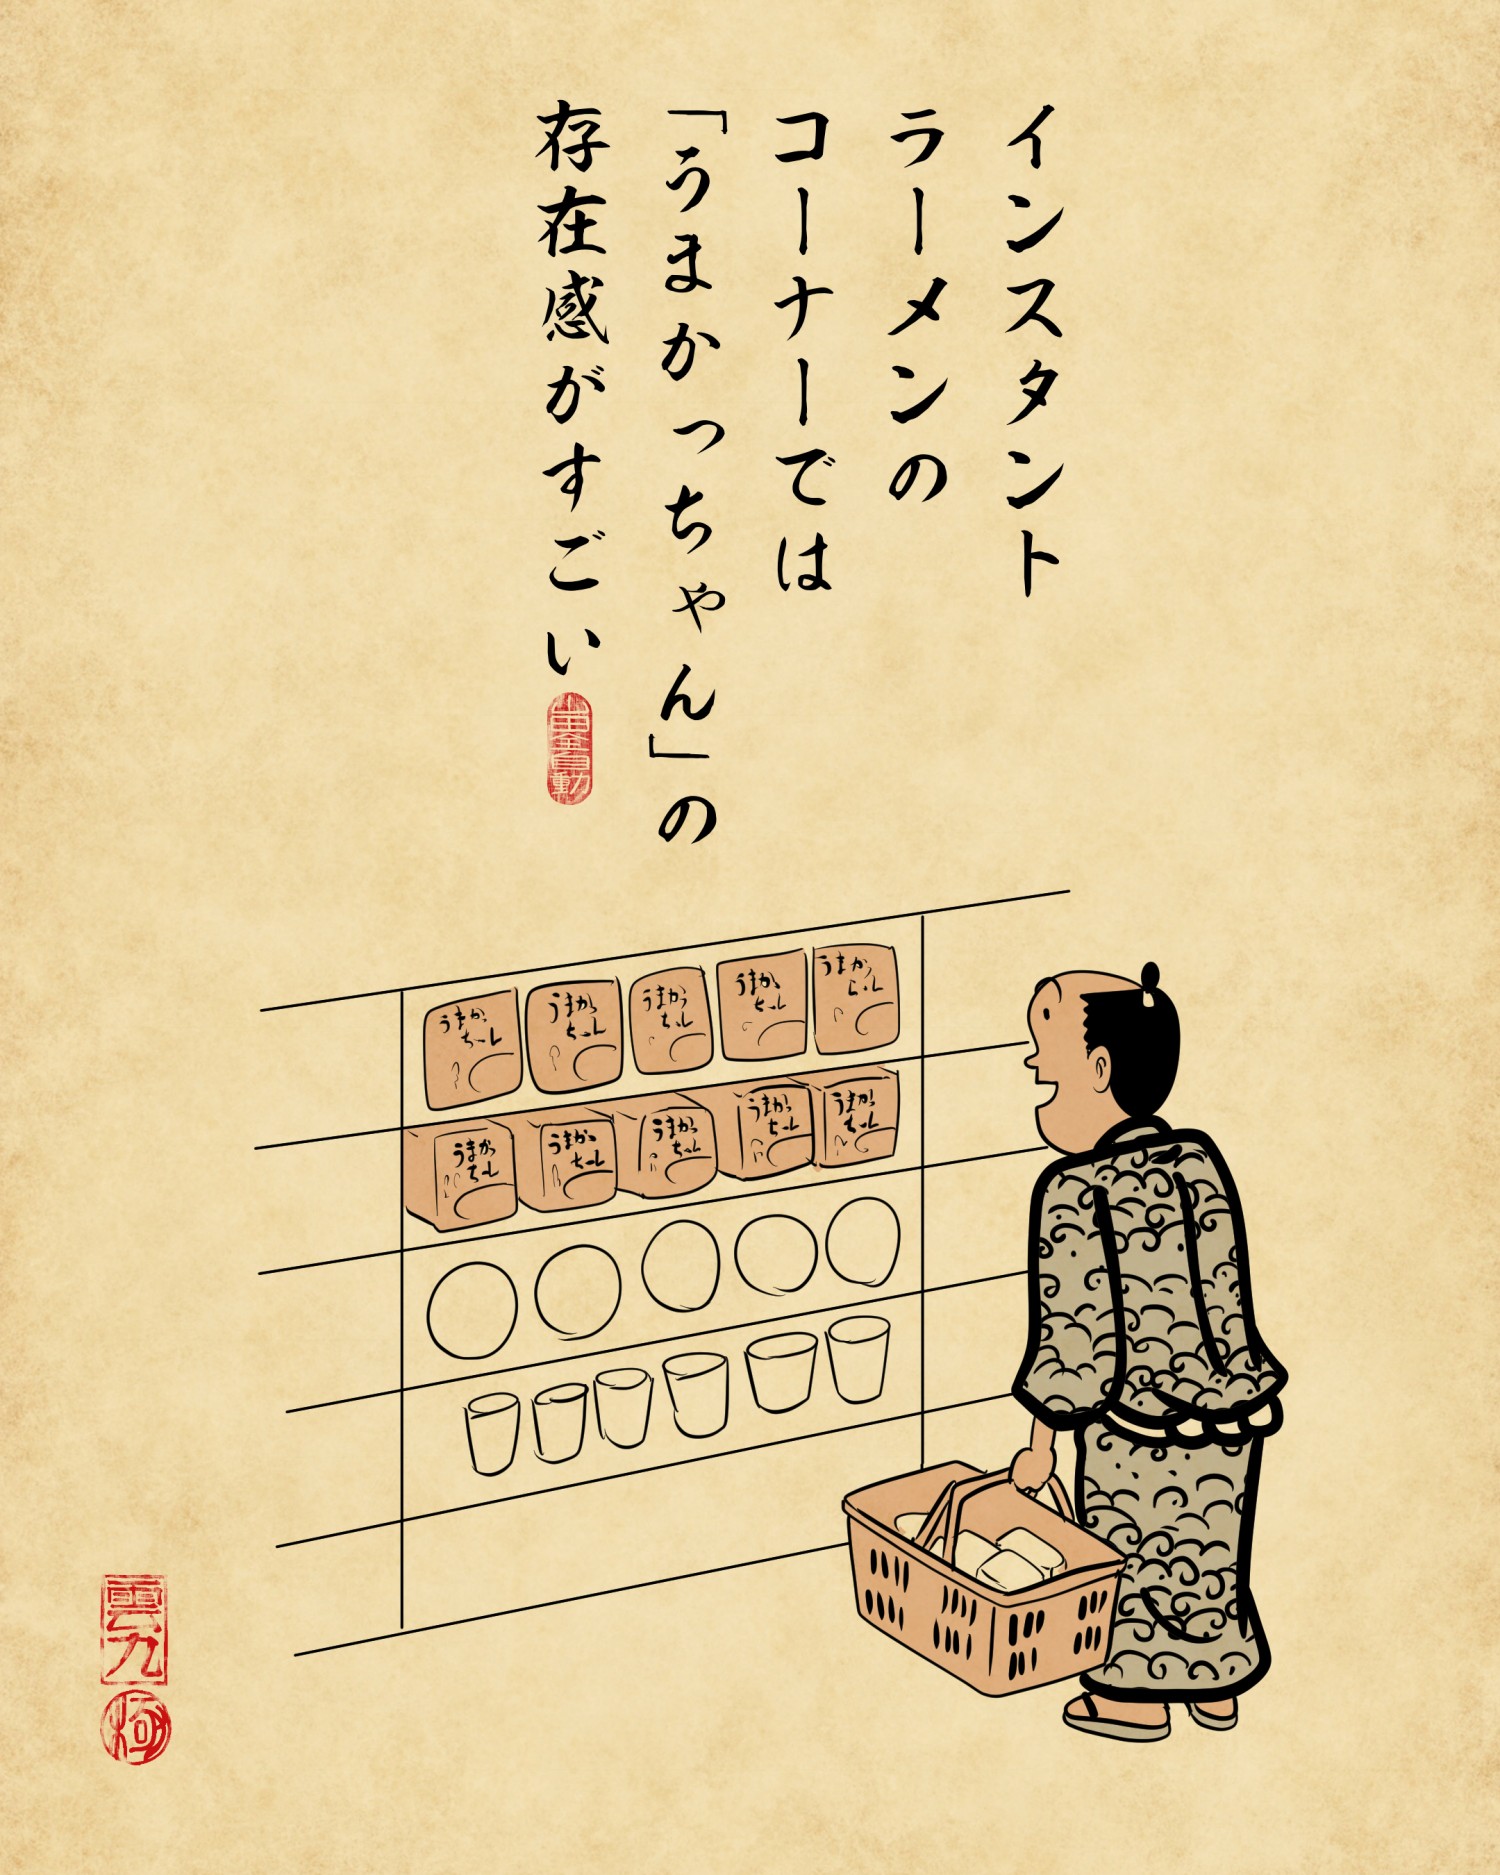 インスタント
ラーメンの
コーナーでは
「うまかっちゃん」の
存在感がすごい
うまかっちゃん
うまかっちゃん
うまかっちゃん
うまかっちゃん
うまかっちゃん
うまかっちゃん
うまかっちゃん
うまかっちゃん
うまかっちゃん
うまかっちゃん
雲九
極